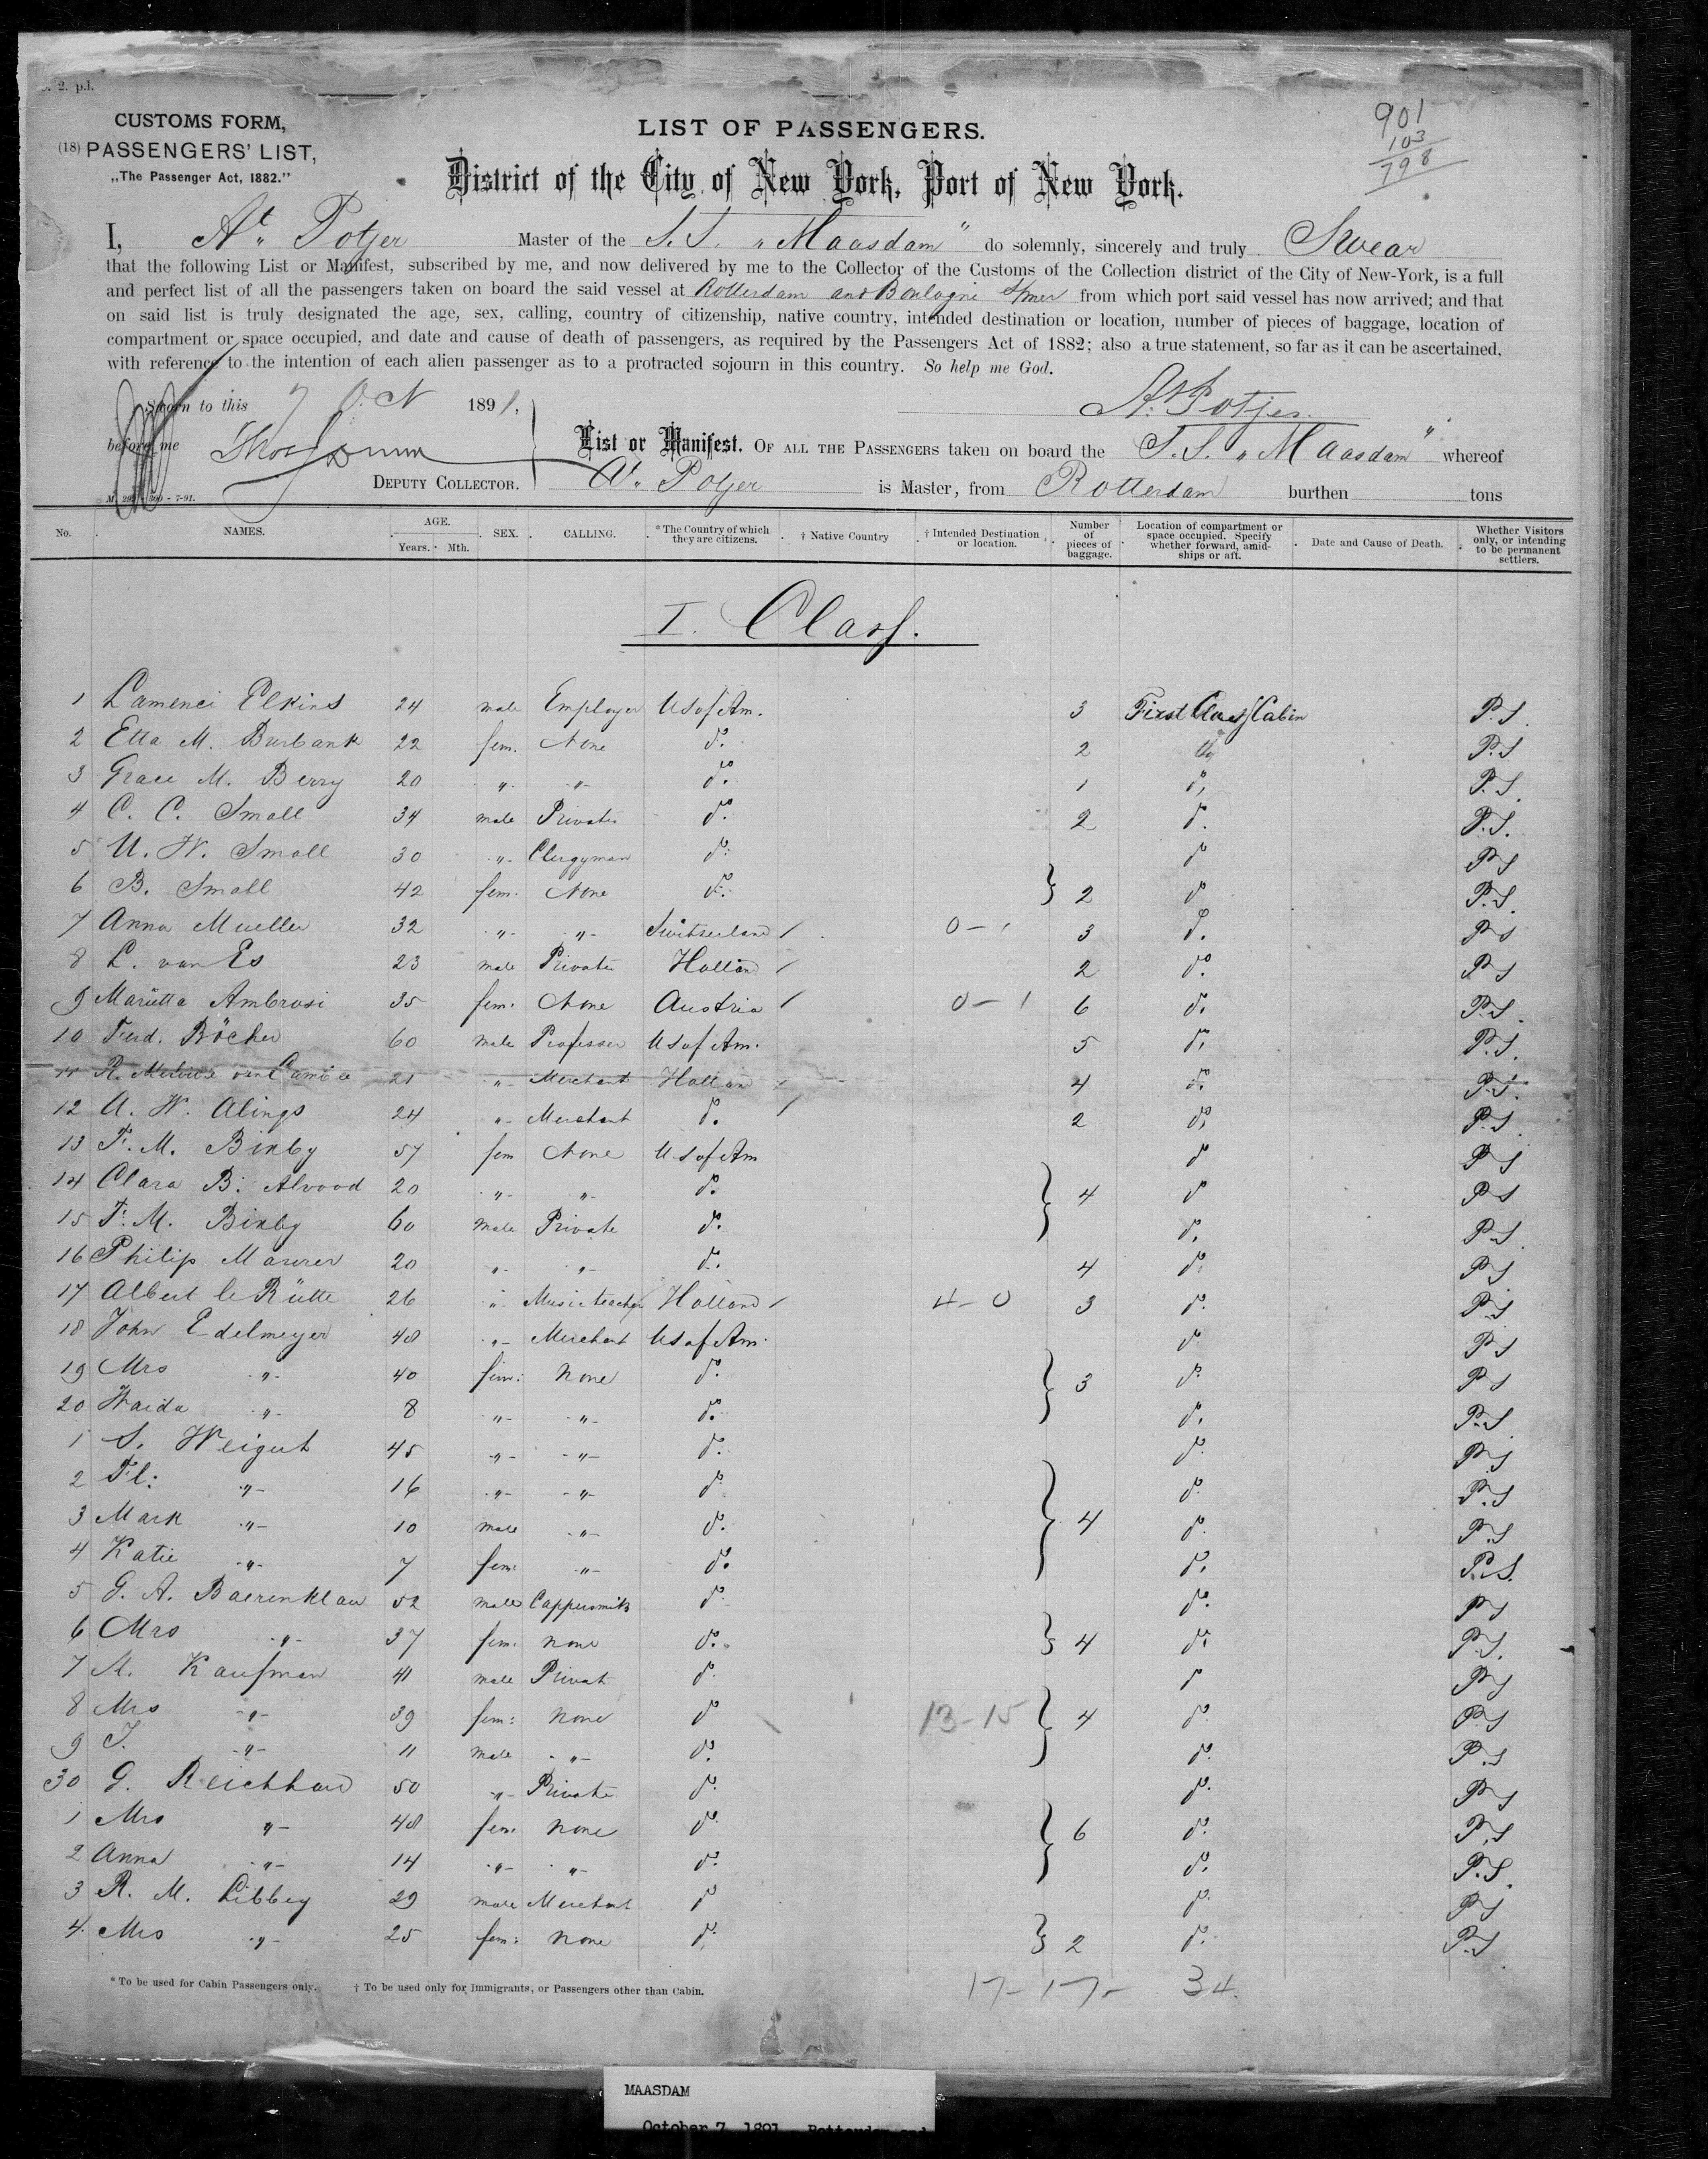 . 2. p.l.
901
103
798
CUSTOMS FORM,
(18) PASSENGERS' LIST,
„The Passenger Act, 1882."
LIST OF PASSENGERS.
District of the City of New York, Port of New York.
I, At. Potjer Master of the S.S. „Maasdam" do solemnly, sincerely and truly Swear
that the following List or Manifest, subscribed by me, and now delivered by me to the Collector of the Customs of the Collection district of the City of New-York, is a full
and perfect list of all the passengers taken on board the said vessel at Rotterdam and Boulogne s/mer from which port said vessel has now arrived; and that
on said list is truly designated the age, sex, calling, country of citizenship, native country, intended destination or location, number of pieces of baggage, location of
compartment or space occupied, and date and cause of death of passengers, as required by the Passengers Act of 1882; also a true statement, so far as it can be ascertained,
with reference to the intention of each alien passenger as to a protracted sojourn in this country. So help me God.
Sworn to this 7 Oct 1891,
At. Potjer
before me
DEPUTY COLLECTOR.
M. 292 - 300 - 7-91.
List or Manifest. OF ALL THE PASSENGERS taken on board the S.S. „Maasdam" whereof
At. Potjer is Master, from Rotterdam burthen tons
No. NAMES. AGE. Years. Mth. SEX. CALLING. * The Country of which they are citizens. † Native Country † Intended Destination or location. Number of pieces of baggage. Location of compartment or space occupied. Specify whether forward, amid-ships or aft. Date and Cause of Death. Whether Visitors only, or intending to be permanent settlers.
I. Class.
1 Lamenci Elkins 24 male Employer US of Am. 3 First Class Cabin P.S.
2 Etta M. Burbank 22 fem. None do. 2 do P.S
3 Grace M. Berry 20 „ „ do. 1 do, P.S.
4 C. C. Small 34 male Private do. 2 do. P.S.
5 U. W. Small 30 „ Clergyman do. do PS
6 B. Small 42 fem. None do. } 2 do P.S.
7 Anna Mueller 32 „ „ Switserland / 0-1 3 do. PS
8 L. van Es 23 male Private Holland / 2 do. PS
9 Marietta Ambrosi 35 fem. None Austria / 0-1 6 do. P.S.
10 Ferd. Böcher 60 male Professor US of Am. 5 do, P.S.
11 R. 21 „ Merchant Holland 4 do. P.S.
12 A. W. Alings 24 „ Merchant do. / 2 do, P.S.
13 F. M. Bixby 57 fem None US of Am do PS
14 Clara B. Alvood 20 „ „ do. } 4 do PS
15 F. M. Bixby 60 male Private do. do. P.S.
16 Philip Maurer 20 „ „ do. 4 do. PS
17 Albert le Rütte 26 „ Musicteacher Holland / 4-0 3 do. PS
18 John Edelmeyer 48 „ Merchant US of Am. do PS
19 Mrs „ 40 fem: None do. } 3 do. PS
20 Waida „ 8 „ „ do. do. P.S
1 S. Weigert 45 „ „ do. do. PS
2 Fl: „ 16 „ „ do do. P.S
3 Mark „ 10 male „ do. } 4 do. P.S
4 Katie „ 7 fem. „ do. do. P.S.
5 G. A. Baerenklau 52 male Coppersmith do. do. PS
6 Mrs „ 37 fem. None do. } 4 do, P.S.
7 M. Kaufman 41 male Privat do. do PS
8 Mrs „ 39 fem: None do 13-15 } 4 do. PS
9 J. „ 11 male „ do. do. P.S
30 G. Reichhard 50 „ Private do. do. PS
1 Mrs „ 48 fem. None do. } 6 do. P.S
2 Anna „ 14 „ „ do. do. P.S.
3 R. M. Libbey 29 male Merchant do do. PS
4. Mrs „ 25 fem: None do. } 2 do. P.S
* To be used for Cabin Passengers only. † To be used only for Immigrants, or Passengers other than Cabin.
17-17- 34.
MAASDAM
October 7, 1891